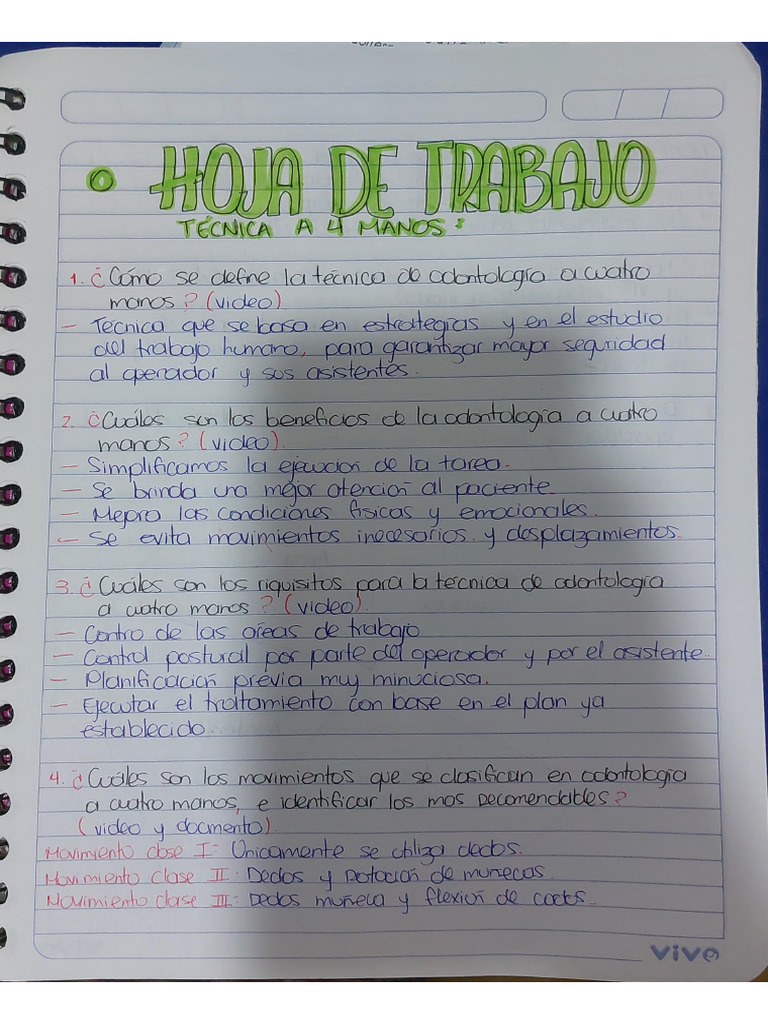 • HOJA DE TRABAJO
TÉCNICA A 4 MANOS:
1. ¿Cómo se define la técnica de odontología a cuatro
manos? (video)
– Técnica que se basa en estrategias y en el estudio
del trabajo humano, para garantizar mayor seguridad
al operador y sus asistentes.
2. ¿Cuáles son los beneficios de la odontología a cuatro
manos? (video)
– Simplificamos la ejecución de la tarea.
– Se brinda una mejor atención al paciente
– Mepro las condiciones físicas y emocionales.
– Se evita movimientos inecesarios y desplazamientos.
3. ¿Cuáles son los riquisitos para la técnica de odontología
a cuatro manos? (video)
– Contro de las áreas de trabajo
– Control postural por parte del operador y por el asistente.
– Planificación previa muy minuciosa.
– Ejecutar el traitamiento con base en el plan ya
establecido.
4. ¿Cuáles son los movimientos que se clasifican en odontología
a cuatro manos, e identificar los mas recomendables?
(video y docmento)
Movimiento clase I: Únicamente se utiliza dedos.
Movimiento clase II: Dedos y rotación de muñecas.
Movimiento clase III: Dedos muñeca y flexión de codos.
vivo